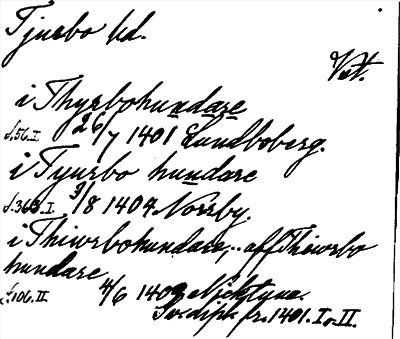 Tjurbo hd.
Vst.
i Thyrbohundare
s.56.I. 26/7 1401 Lundboberg.
i Tyurbo hundare
s.363.I. 3/8 1404 Norrby.
i Thiwrbohundare,.. aff Thiwrbo
hundare
s.106.II. 4/6 1409
Sv. dipl. fr. 1401. I o. II.